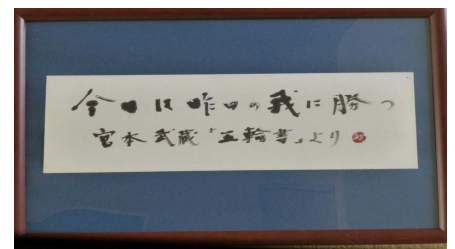 今日は昨日の我に勝つ
宮本武蔵「五輪書」より